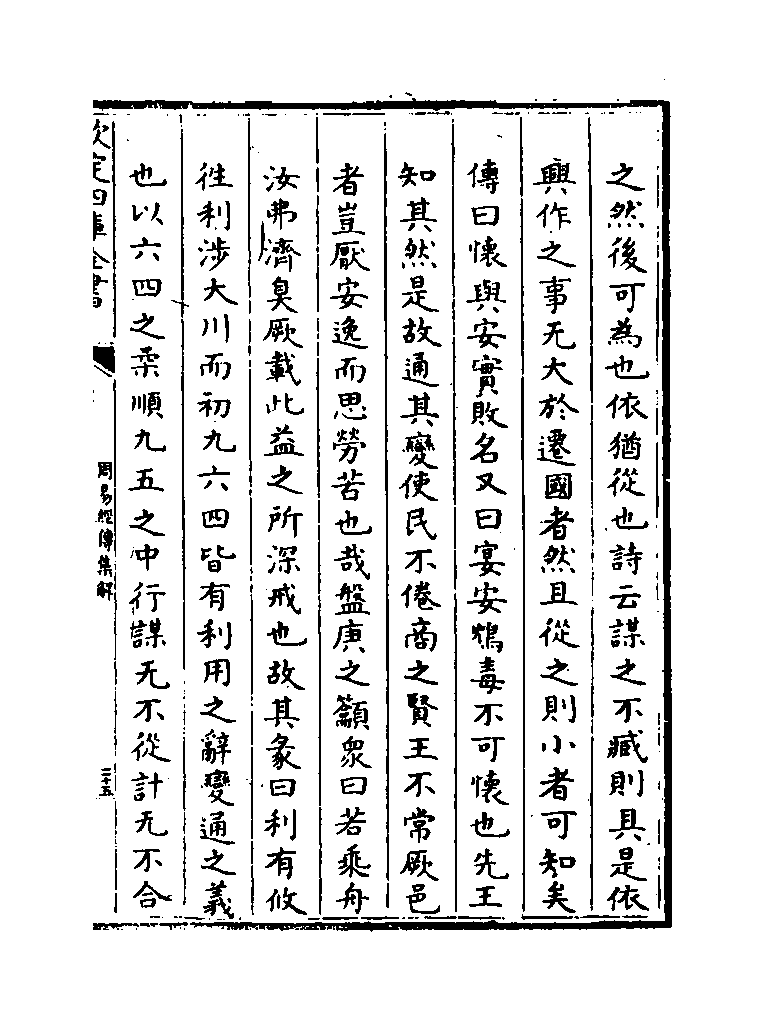 之然後可為也依猶從也詩云謀之不臧則具是依
興作之事无大於遷國者然且從之則小者可知矣
傳曰懷與安實敗名又曰宴安鴆毒不可懷也先王
知其然是故通其變使民不倦商之賢王不常厥邑
者豈厭安逸而思勞苦也哉盤庚之籲衆曰若乘舟
汝弗濟臭厥載此益之所深戒也故其彖曰利有攸
徃利涉大川而初九六四皆有利用之辭變通之義
也以六四之柔順九五之中行謀无不從計无不合
欽定四庫全書
周易經傳集解
二十五